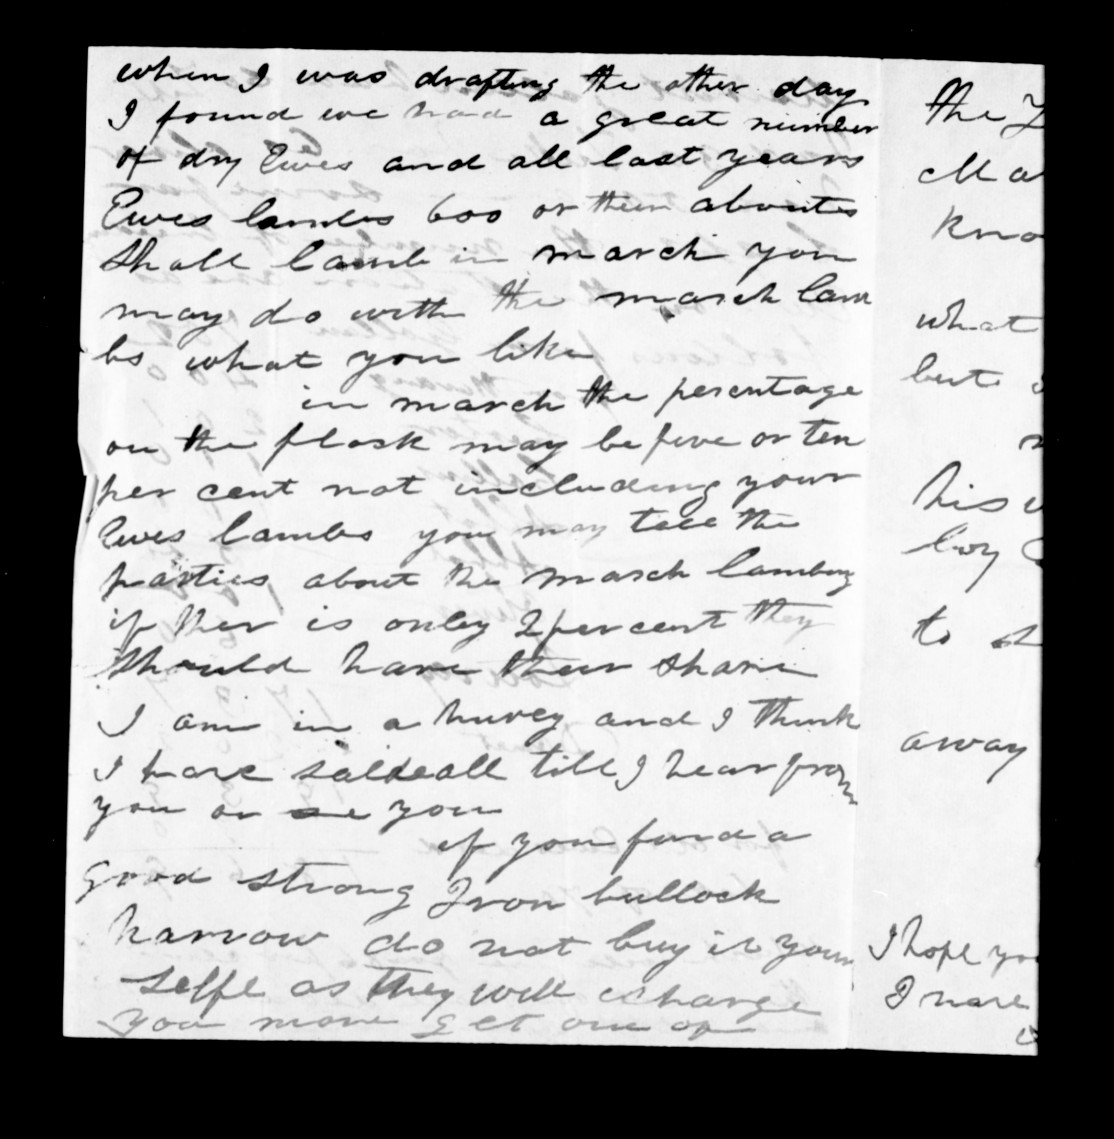 when I was drafting the other day
I found we had a great number
of dry Ewes and all last years
Ewes lambs 600 or their aboutes
Shall lamb in march you
may do with the march lam
bs what you like
in march the persentage
on the flock may be five or ten
per cent not including your
Ewes lambs you may tell the
parties about the march lambing
if ther is only 2 per cent they
should have their share
I am in a hurey and I think
I have saide all till I hear from
you or see you
if you find a
good strong Iron bullock
harrow do not buy it your
selfe as they will charge
you more get one of
the
Ma
kno
what
but
his
boy
to
away
I hope yo
I have